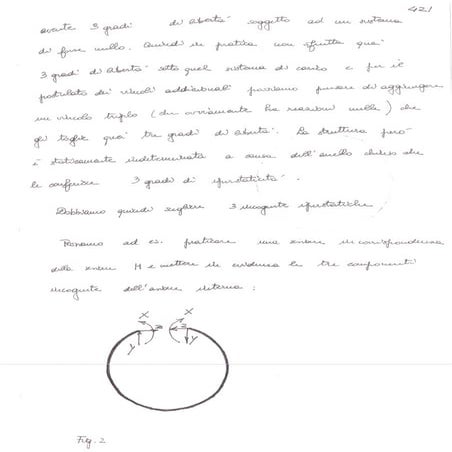 421
avente 3 gradi di libertà soggetto ad un sistema
di forze nullo. Quindi in pratica non sfrutta quei
3 gradi di libertà sotto quel sistema di carico e per il
postulato dei vincoli addizionali possiamo pensare di aggiungere
un vincolo triplo (che ovviamente ha reazioni nulle) che
gli toglie quei tre gradi di libertà. La struttura però
è staticamente indeterminata a causa dell'anello chiuso che
le conferisce 3 gradi di iperstaticità.
Dobbiamo quindi scegliere 3 incognite iperstatiche
Possiamo ad es. praticare una sezione in corrispondenza
della sezione H e mettere in evidenza le tre componenti
incognite dell'azione interna:
X X
Y Y
Fig. 2